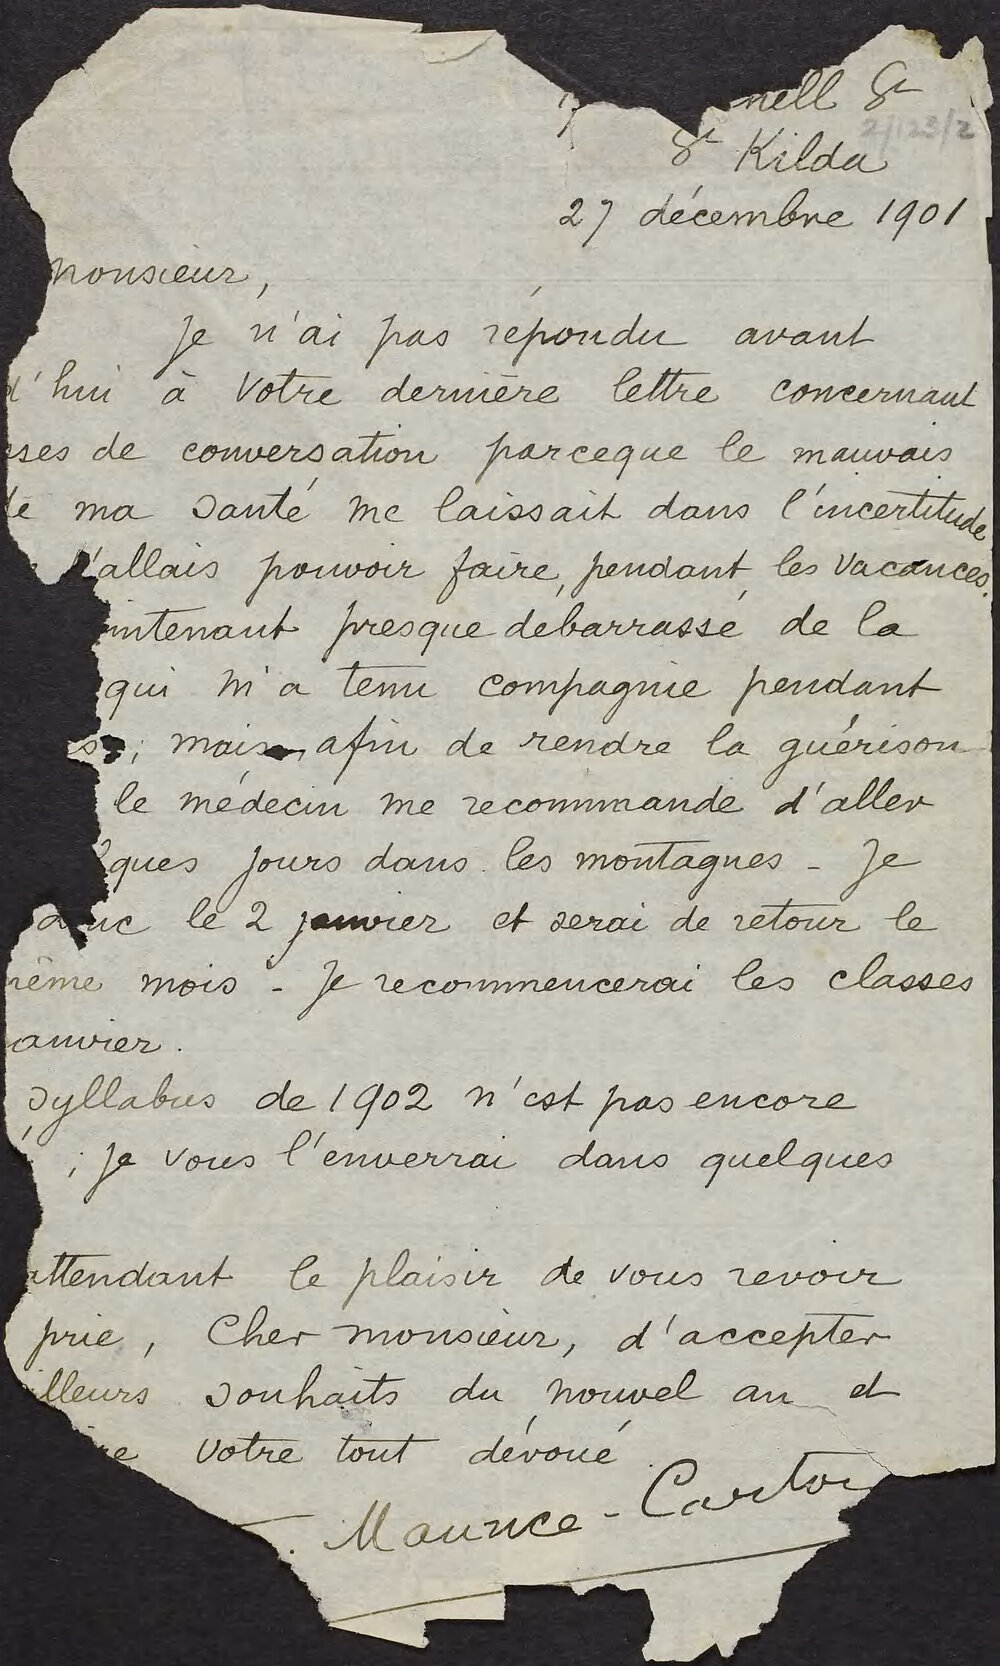 nell St
2/123/2
St Kilda
27 décembre 1901
monsieur,
Je n'ai pas répondu avant
d'hui à votre dernière lettre concernant
sses de conversation parceque le mauvais
de ma santé me laissait dans l'incertitude
j'allais pouvoir faire, pendant les vacances.
intenant presque débarrassé de la
qui m'a tenu compagnie pendant
s; mais afin de rendre la guérison
le médecin me recommande d'aller
ques jours dans les montagnes - Je
donc le 2 janvier et serai de retour le
même mois - Je recommencerai les classes
anvier.
syllabus de 1902 n'est pas encore
; je vous l'enverrai dans quelques
attendant le plaisir de vous revoir
prie, Cher monsieur, d'accepter
illeurs souhaits du nouvel an et
re votre tout dévoué
Maurice-Carton